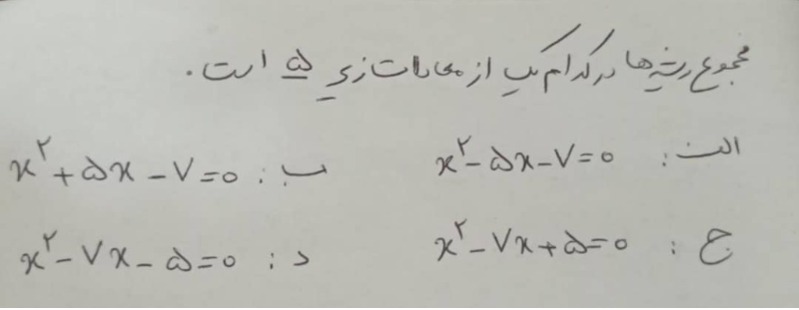 مجموع ریشه‌ها در کدام یک از معادلات زیر ۵ است.
الف: x²-۵x-۷=۰ ب: x²+۵x-۷=۰
ج: x²-۷x+۵=۰ د: x²-۷x-۵=۰